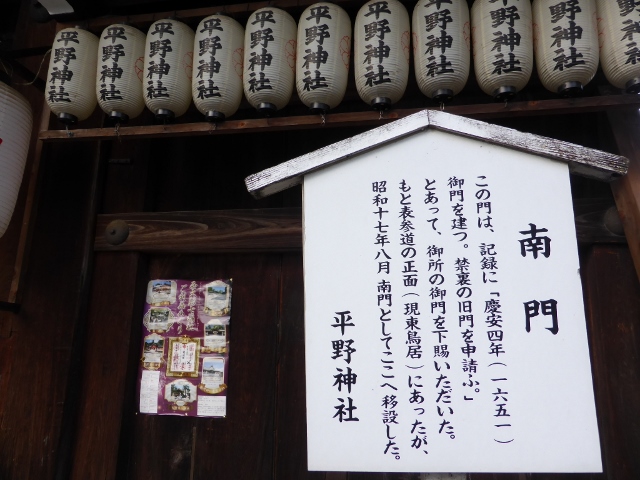 平野神社
平野神社
平野神社
平野神社
平野神社
平野神社
平野神社
平野神社
平野神社
平野神社
平野神社
南門
この門は、記録に「慶安四年(一六五一)
御門を建つ。禁裏の旧門を申請ふ。」
とあって、御所の御門を下賜いただいた。
もと表参道の正面(現東鳥居)にあったが、
昭和十七年八月 南門としてここへ移設した。
平野神社